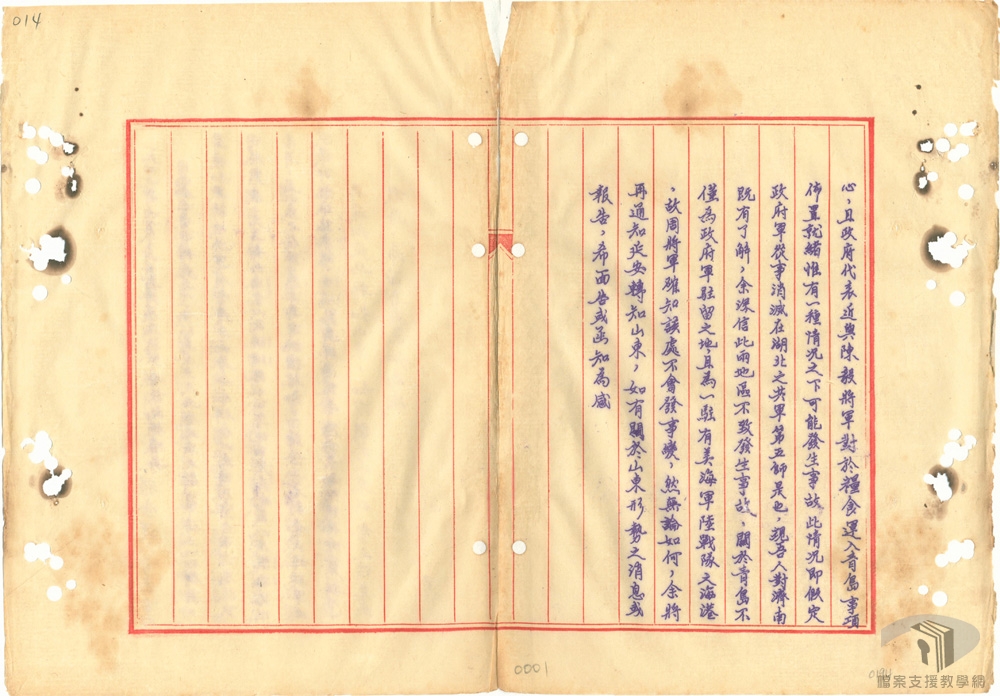 014
心，且政府代表近與陳毅將軍對於糧食運入青島事項
佈置就緒惟有一種情況之下可能發生事故此情況即假定
政府軍從事消滅在湖北之共軍第五師是也，現吾人對濟南
既有了解，余深信此兩地區不致發生事故，關於青島不
僅為政府軍駐留之地，且為一駐有美海軍陸戰隊之海港
，故周將軍確知該處不會發生事變，然無論如何，余將
再通知延安轉知山東，如有關於山東形勢之消息或
報告，希面告或函知為感
0001
檔案支援教學網